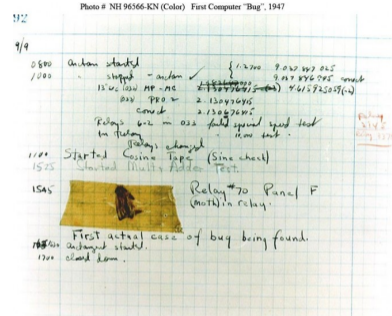 Photo # NH 96566-KN (Color) First Computer "Bug", 1947
92
9/9
0800 antan started
1000 " stopped - antan ✓
{ 1.2700 9.037 847 025
9.037 846 995 correct
13"uc (032) MP-MC 4.615925059(-2)
(033) PRO 2 2.130476415
correct 2.130676415
Relays 6-2 in 033 failed special speed test
in relay " 11.000 test.
Relays changed
1100 Started Cosine Tape (Sine check)
1525 Started Multi Adder Test.
1545 Relay #70 Panel F
(moth) in relay.
First actual case of bug being found.
antangent started.
1700 closed down.